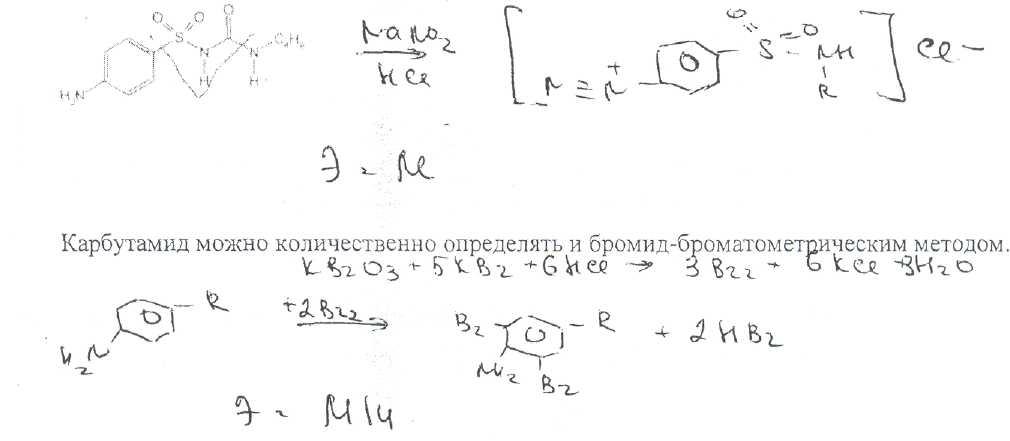 H₂N O O S N H O N H C₄H₉ NaNO₂ HCl [N ≡ N⁺ O S O NH R] Cl⁻
Э = M
Карбутамид можно количественно определять и бромид-броматометрическим методом.
KBrO₃ + 5KBr + 6HCl → 3Br₂ + 6KCl 3H₂O
H₂N R +2Br₂ Br R NH₂ Br + 2HBr
Э = M/4